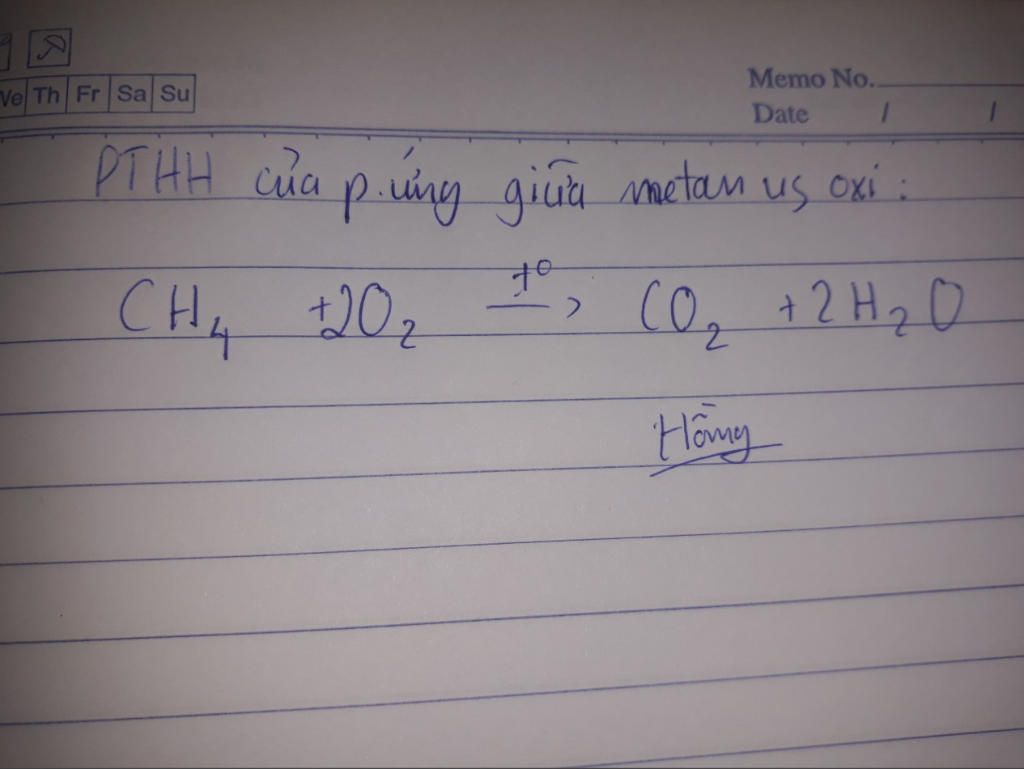 We Th Fr Sa Su
Memo No.
Date / /
PTHH của p.ứng giữa metan vs oxi:
CH₄ +2O₂ —t°→ CO₂ +2H₂O
Hồng